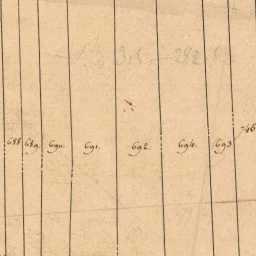 688 689. 690. 691. 692. 694. 693 746